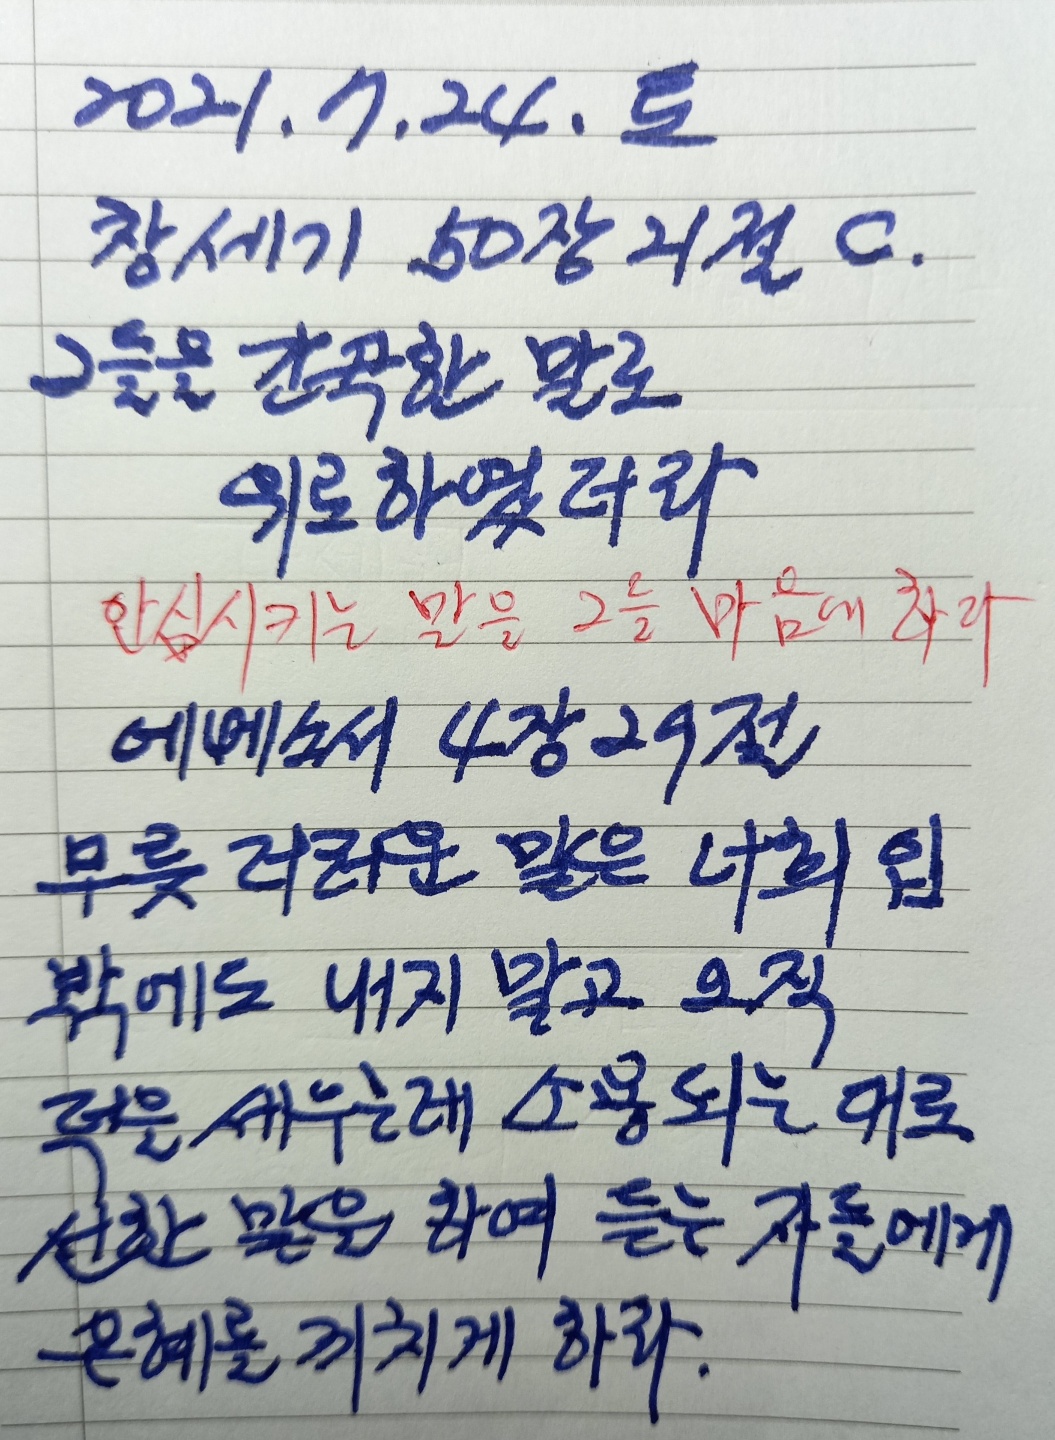 2021. 7. 24. 토
창세기 50장 21절 C.
그들을 간곡한 말로
위로하였더라
안심시키는 말을 그들 마음에 하라
에베소서 4장 29절
무릇 더러운 말은 너희 입
밖에도 내지 말고 오직
덕을 세우는데 소용되는 대로
선한 말을 하여 듣는 자들에게
은혜를 끼치게 하라.